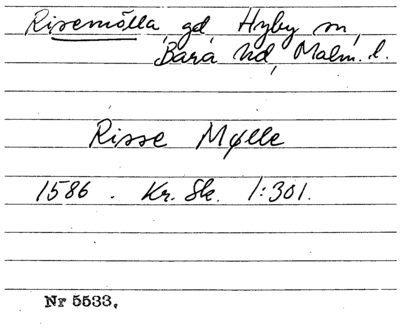 Risemölla, gd, Hyby sn,
Bara hd, Malm. l.
Risse Mølle
1586. Kr. Sk. 1:301.
Nr 5533.